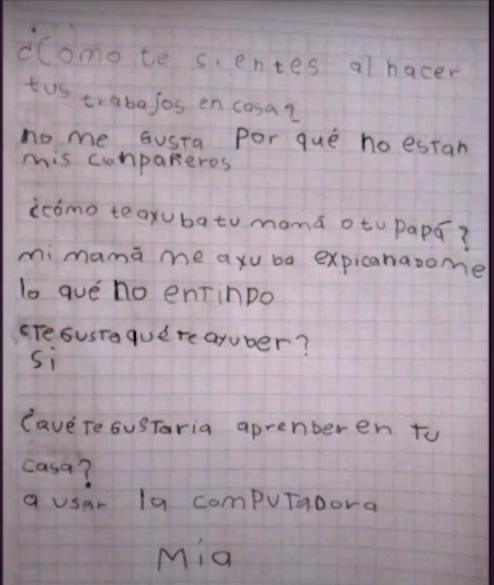 ¿Cómo te sientes al hacer
tus trabajos en casa?
no me gusta por qué no estan
mis conpañeros
¿cómo te ayubatu mamá o tu papá?
mi mamá me ayuba expicanadome
lo qué no entindo
¿Te gusta qué te ayuber?
si
¿qué te gustaria aprenber en tu
casa?
a usar la computadora
Mía